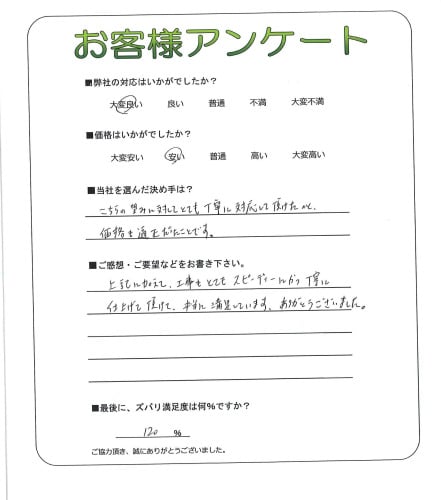 お客様アンケート
■弊社の対応はいかがでしたか？
大変良い 良い 普通 不満 大変不満
■価格はいかがでしたか？
大変安い 安い 普通 高い 大変高い
■当社を選んだ決め手は？
こちらの望みに対してとても丁寧に対応して頂けたかと、
価格も適正だたことです。
■ご感想・ご要望などをお書き下さい。
上記に加えて、工事もとてもスピーディーにかつ丁寧に
仕上げて頂けて、本当に満足しています。ありがとうございました。
■最後に、ズバリ満足度は何％ですか？
120 ％
ご協力頂き、誠にありがとうございました。